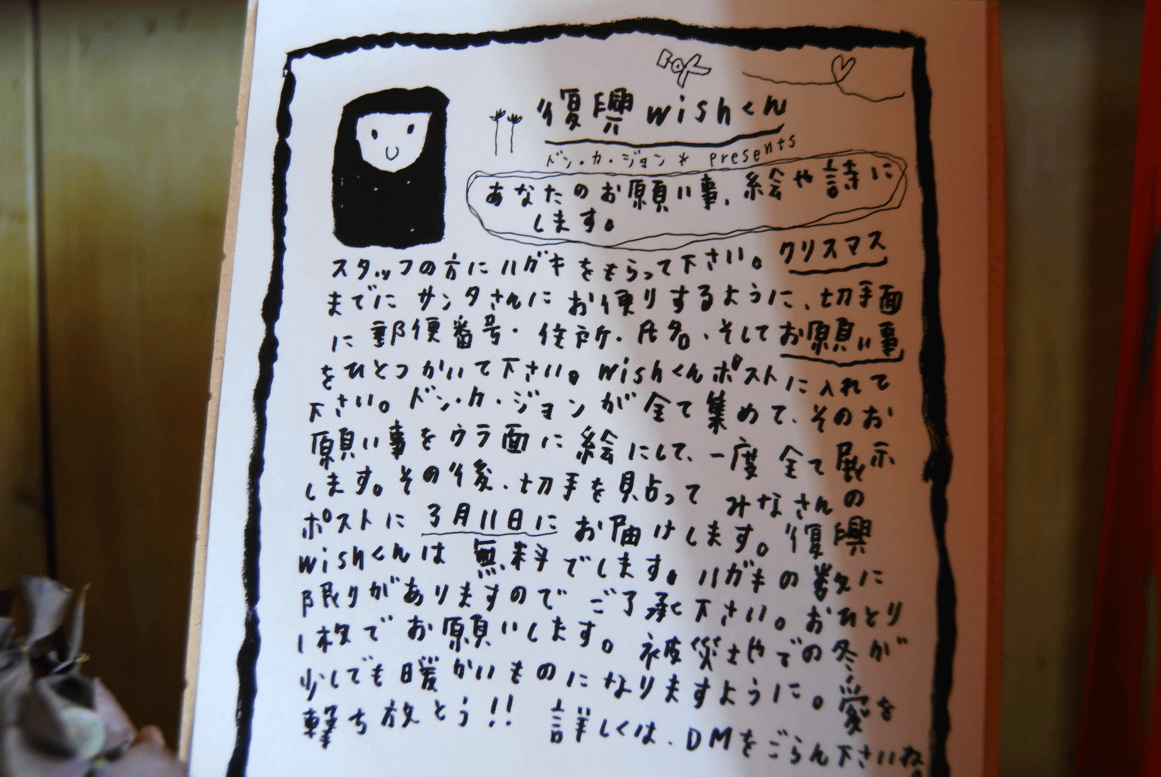 復興wishくん
ドン・カ・ジョン* presents
あなたのお願い事、絵や詩に
します。
スタッフの方にハガキをもらって下さい。クリスマス
までにサンタさんにお便りするように、切手面
に郵便番号・住所・氏名、そしてお願い事
をひとつかいて下さい。wishくんポストに入れて
下さい。ドン・カ・ジョンが全て集めて、そのお
願い事をウラ面に絵にして、一度全て展示
します。その後、切手を貼ってみなさんの
ポストに3月11日にお届けします。復興
wishくんは無料でします。ハガキの数に
限りがありますのでご了承下さい。おひとり
1枚でお願いします。被災地での冬が
少しでも暖かいものになりますように。愛を
撃ち放とう!! 詳しくは、DMをごらん下さいね